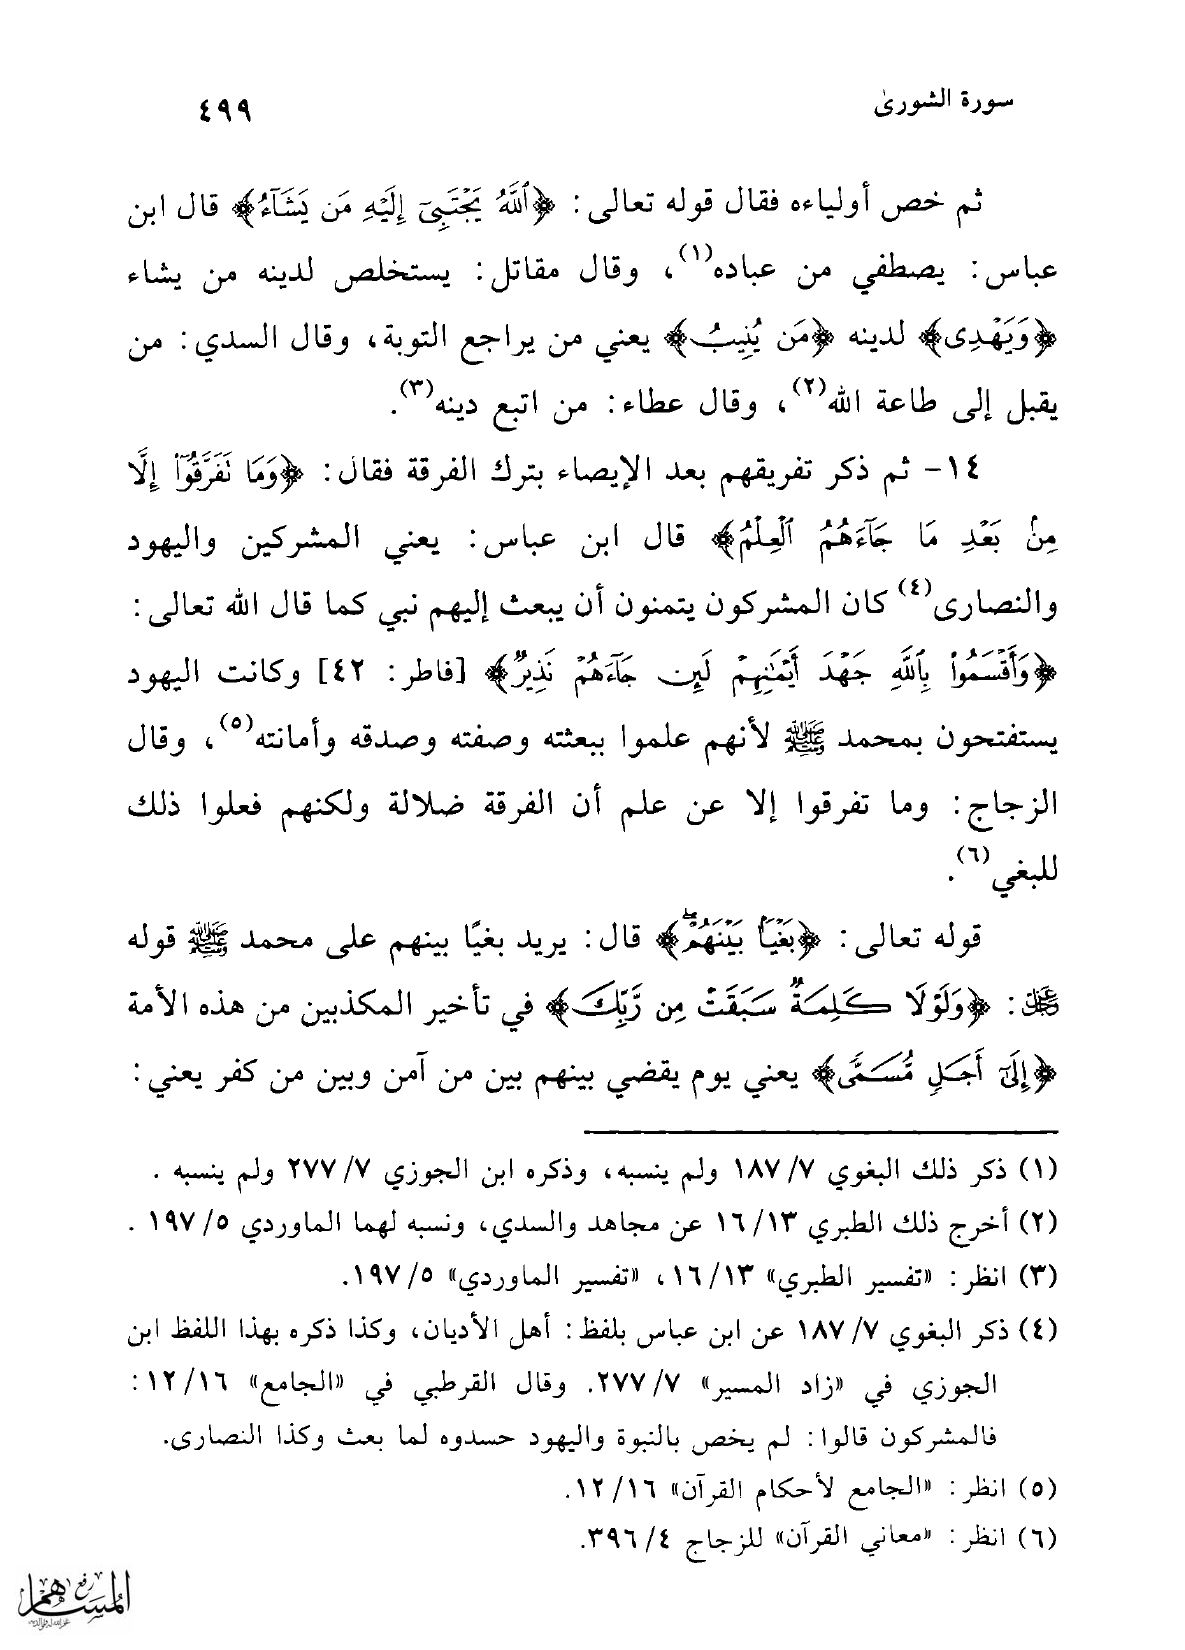 سورة الشورىٰ
٤٩٩
ثم خص أولياءه فقال قوله تعالى: ﴿ٱللَّهُ يَجۡتَبِىٓ إِلَيۡهِ مَن يَشَآءُ﴾ قال ابن
عباس: يصطفي من عباده(١)، وقال مقاتل: يستخلص لدينه من يشاء
﴿وَيَهۡدِىٓ﴾ لدينه ﴿مَن يُنِيبُ﴾ يعني من يراجع التوبة، وقال السدي: من
يقبل إلى طاعة الله(٢)، وقال عطاء: من اتبع دينه(٣).
١٤- ثم ذكر تفريقهم بعد الإيصاء بترك الفرقة فقال: ﴿وَمَا تَفَرَّقُوٓاْ إِلَّا
مِنۢ بَعۡدِ مَا جَآءَهُمُ ٱلۡعِلۡمُ﴾ قال ابن عباس: يعني المشركين واليهود
والنصارى(٤) كان المشركون يتمنون أن يبعث إليهم نبي كما قال الله تعالى:
﴿وَأَقۡسَمُواْ بِٱللَّهِ جَهۡدَ أَيۡمَٰنِهِمۡ لَئِن جَآءَهُمۡ نَذِيرٞ﴾ [فاطر: ٤٢] وكانت اليهود
يستفتحون بمحمد ﷺ لأنهم علموا ببعثته وصفته وصدقه وأمانته(٥)، وقال
الزجاج: وما تفرقوا إلا عن علم أن الفرقة ضلالة ولكنهم فعلوا ذلك
للبغي(٦).
قوله تعالى: ﴿بَغۡيَۢا بَيۡنَهُمۡۚ﴾ قال: يريد بغيًا بينهم على محمد ﷺ قوله
عز وجل: ﴿وَلَوۡلَا كَلِمَةٞ سَبَقَتۡ مِن رَّبِّكَ﴾ في تأخير المكذبين من هذه الأمة
﴿إِلَىٰٓ أَجَلٖ مُّسَمّٗى﴾ يعني يوم يقضي بينهم بين من آمن وبين من كفر يعني:
(١) ذكر ذلك البغوي ٧/ ١٨٧ ولم ينسبه، وذكره ابن الجوزي ٧/ ٢٧٧ ولم ينسبه .
(٢) أخرج ذلك الطبري ١٣/ ١٦ عن مجاهد والسدي، ونسبه لهما الماوردي ٥/ ١٩٧ .
(٣) انظر: «تفسير الطبري» ١٣/ ١٦، «تفسير الماوردي» ٥/ ١٩٧.
(٤) ذكر البغوي ٧/ ١٨٧ عن ابن عباس بلفظ: أهل الأديان، وكذا ذكره بهذا اللفظ ابن
الجوزي في «زاد المسير» ٧/ ٢٧٧. وقال القرطبي في «الجامع» ١٦/ ١٢:
فالمشركون قالوا: لم يخص بالنبوة واليهود حسدوه لما بعث وكذا النصارى.
(٥) انظر: «الجامع لأحكام القرآن» ١٦/ ١٢.
(٦) انظر: «معاني القرآن» للزجاج ٤/ ٣٩٦.